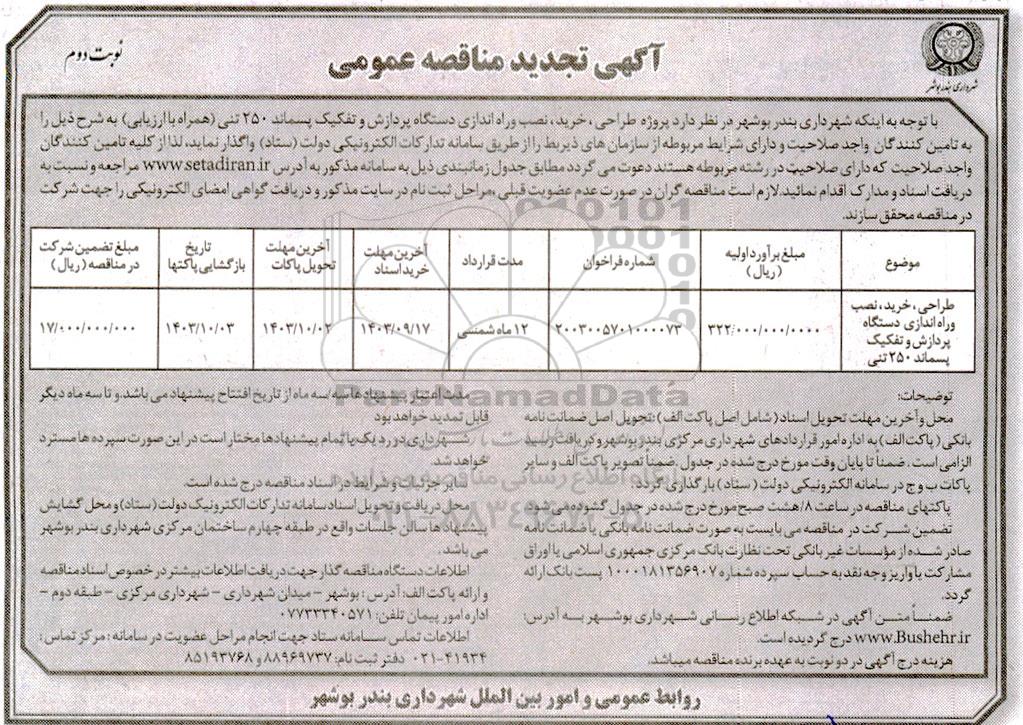 نوبت دوم
آگهی تجدید مناقصه عمومی
شهرداری بندر بوشهر
با توجه به اینکه شهرداری بندر بوشهر در نظر دارد پروژه طراحی ، خرید ، نصب وراه اندازی دستگاه پردازش و تفکیک پسماند ۲۵۰ تنی (همراه با ارزیابی) به شرح ذیل را
به تامین کنندگان واجد صلاحیت و دارای شرایط مربوطه از سازمان های ذیربط را از طریق سامانه تدارکات الکترونیکی دولت (ستاد) واگذار نماید، لذا از کلیه تامین کنندگان
واجد صلاحیت که دارای صلاحیت در رشته مربوطه هستند دعوت می گردد مطابق جدول زمانبندی ذیل به سامانه مذکور به آدرس www.setadiran.ir مراجعه و نسبت به
دریافت اسناد و مدارک اقدام نمائید. لازم است مناقصه گران در صورت عدم عضویت قبلی ،مراحل ثبت نام در سایت مذکور و دریافت گواهی امضای الکترونیکی را جهت شرکت
در مناقصه محقق سازند.
موضوع
مبلغ برآورد اولیه (ریال)
شماره فراخوان
مدت قرارداد
آخرین مهلت خرید اسناد
آخرین مهلت تحویل پاکات
تاریخ بازگشایی پاکتها
مبلغ تضمین شرکت در مناقصه (ریال)
طراحی ، خرید ، نصب
وراه اندازی دستگاه
پردازش و تفکیک
پسماند ۲۵۰ تنی
۳۲۲/۰۰۰/۰۰۰/۰۰۰۰
۲۰۰۳۰۰۵۷۰۱۰۰۰۰۷۳
۱۲ ماه شمسی
۱۴۰۳/۰۹/۱۷
۱۴۰۳/۱۰/۰۲
۱۴۰۳/۱۰/۰۳
۱۷/۰۰۰/۰۰۰/۰۰۰
توضیحات:
محل و آخرین مهلت تحویل اسناد (شامل اصل پاکت الف) :تحویل اصل ضمانت نامه
بانکی ( پاکت الف) به اداره امور قراردادهای شهرداری مرکزی بندر بوشهر و دریافت رسید
الزامی است . ضمناً تا پایان وقت مورخ درج شده در جدول .ضمناً تصویر پاکت الف و سایر
پاکات ب و ج در سامانه الکترونیکی دولت ( ستاد) بارگذاری گردد.
پاکتهای مناقصه در ساعت ۸/هشت صبح مورخ درج شده در جدول گشوده می شود
تضمین شرکت در مناقصه می بایست به صورت ضمانت نامه بانکی یا ضمانت نامه
صادر شده از مؤسسات غیر بانکی تحت نظارت بانک مرکزی جمهوری اسلامی یا اوراق
مشارکت یا واریز وجه نقد به حساب سپرده شماره ۱۰۰۰۱۸۱۳۵۶۹۰۷ پست بانک ارائه
گردد.
ضمناً متن آگهی در شبکه اطلاع رسانی شهرداری بوشهر به آدرس:
www.Bushehr.ir درج گردیده است.
هزینه درج آگهی در دو نوبت به عهده برنده مناقصه میباشد.
مدت اعتبار پیشنهادها سه/سه ماه از تاریخ افتتاح پیشنهاد می باشد. و تا سه ماه دیگر
قابل تمدید خواهد بود
شهرداری در رد یک یا تمام پیشنهادها مختار است در این صورت سپرده ها مسترد
خواهد شد.
سایر جزئیات و شرایط در اسناد مناقصه درج شده است.
محل دریافت و تحویل اسناد سامانه تدارکات الکترونیک دولت (ستاد) و محل گشایش
پیشنهادها سالن جلسات واقع در طبقه چهارم ساختمان مرکزی شهرداری بندر بوشهر
می باشد.
اطلاعات دستگاه مناقصه گذار جهت دریافت اطلاعات بیشتر در خصوص اسناد مناقصه
و ارائه پاکت الف: آدرس : بوشهر – میدان شهرداری – شهرداری مرکزی – طبقه دوم –
اداره امور پیمان تلفن: ۰۷۷۳۳۳۴۰۵۷۱
اطلاعات تماس سامانه ستاد جهت انجام مراحل عضویت در سامانه : مرکز تماس :
۰۲۱-۴۱۹۳۴ دفتر ثبت نام: ۸۸۹۶۹۷۳۷ و ۸۵۱۹۳۷۶۸
روابط عمومی و امور بین الملل شهرداری بندر بوشهر
ParsNamadData